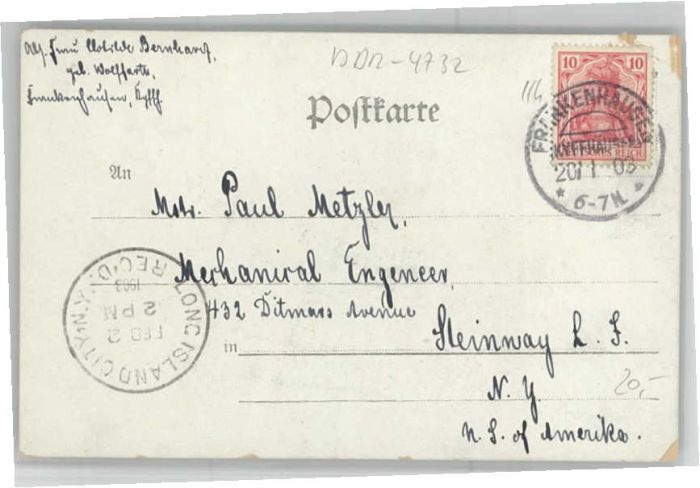 Abs. Frau Clotilde Bernhardt,
geb. Wolffarts,
Frankenhausen, Kyffh.
DDR-4732
116
10 10
DEUTSCHES REICH
FRANKENHAUSEN
KYFFHÄUSER
20/1 03
* 6-7N. *
Postkarte
An
Mstr. Paul Metzler,
Mechanical Engeneer,
432 Ditmars Avenue
in Steinway L. I.
N. Y.
U. S. of Amerika.
20,-
LONG ISLAND CITY, N.Y.
REC'D.
1903
2 PM
FEB 2